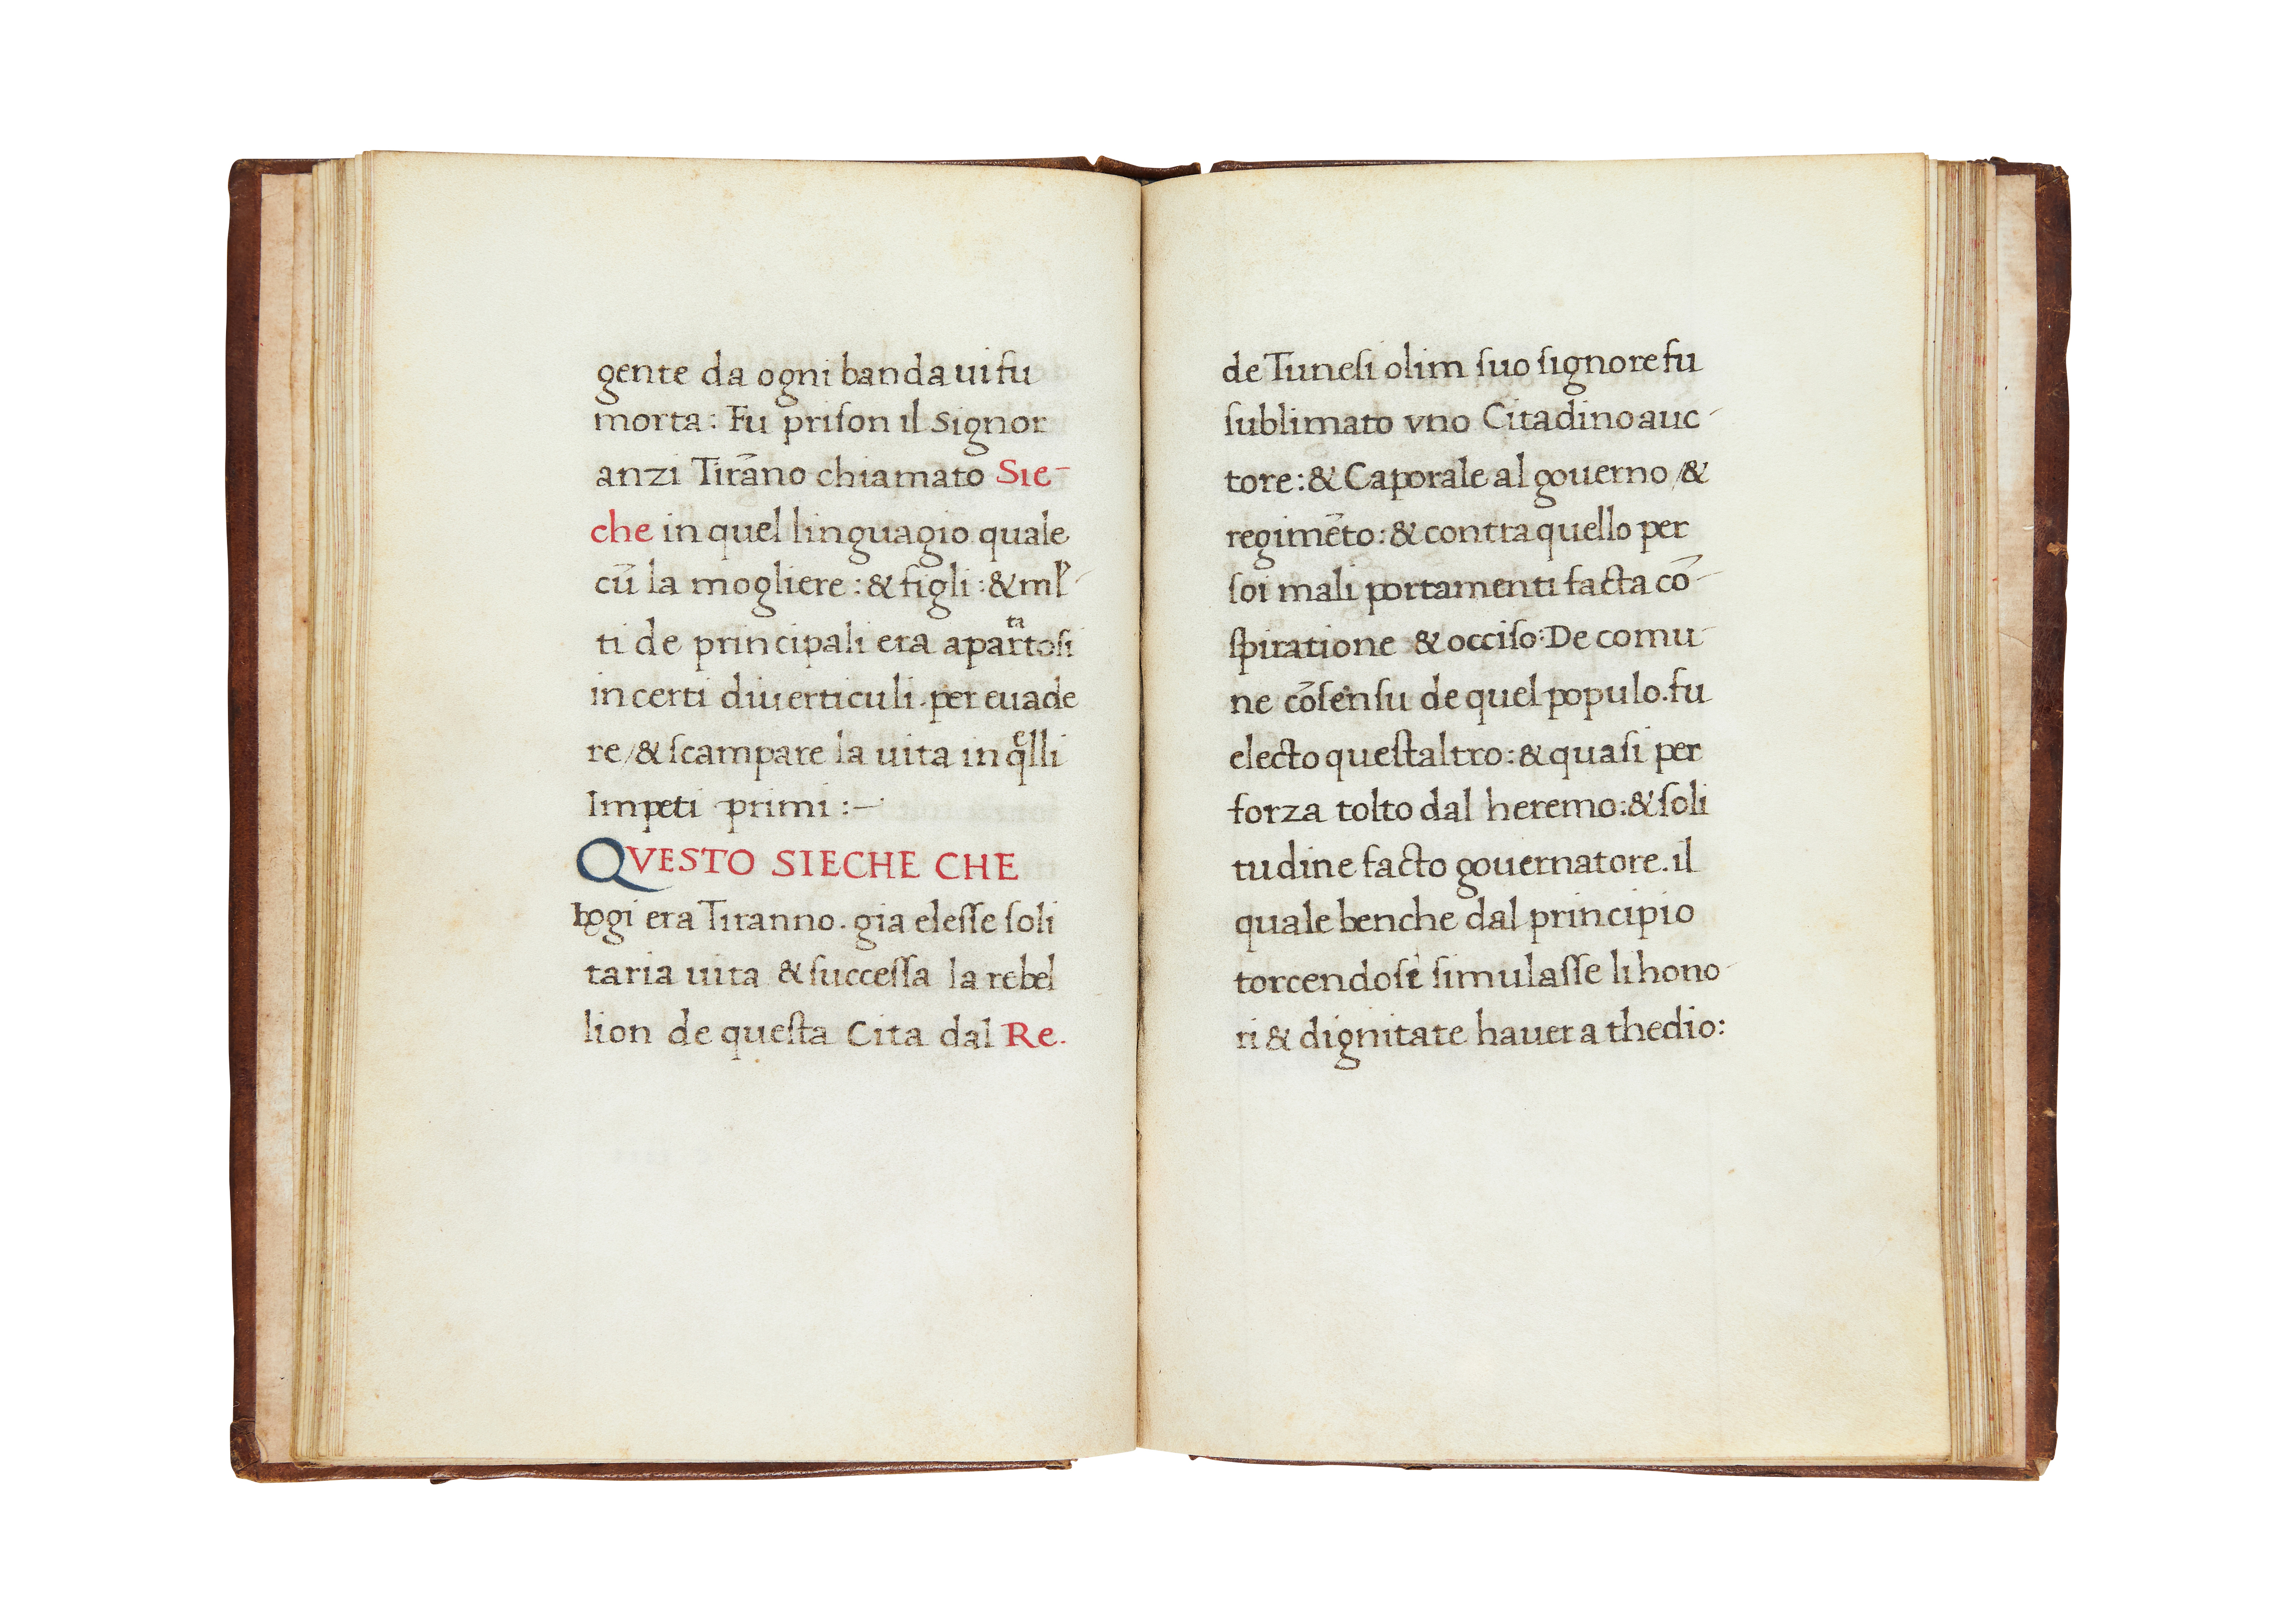 gente da ogni banda ui fu
morta: Fu priſon il Signor
anzi Tirāno chiamato Sie-
che in quel linguagio quale
cū la mogliere: & figli: & ml-
ti de principali era apartatosi
in certi diuerticuli. per euade
re/& ſcampare la uita in qelli
Impeti primi:—
QVESTO SIECHE CHE
hogi era Tiranno. gia eleſſe ſoli
taria uita & ſucceſſa la rebel
lion de queſta Cita dal Re.
de Tuneſi olim ſuo ſignore fu
ſublimato vno Citadino auc-
tore: & Caporale al gouerno /&
regimēto: & contra quello per
ſoi mali portamenti facta cō-
ſpiratione & occiſo: De comu-
ne cōſenſu de quel populo. fu
electo queſtaltro: & quaſi per
forza tolto dal heremo: & ſoli
tudine facto gouernatore. il
quale benche dal principio
torcendoſi ſimulaſſe li hono-
ri & dignitate hauer a thedio: